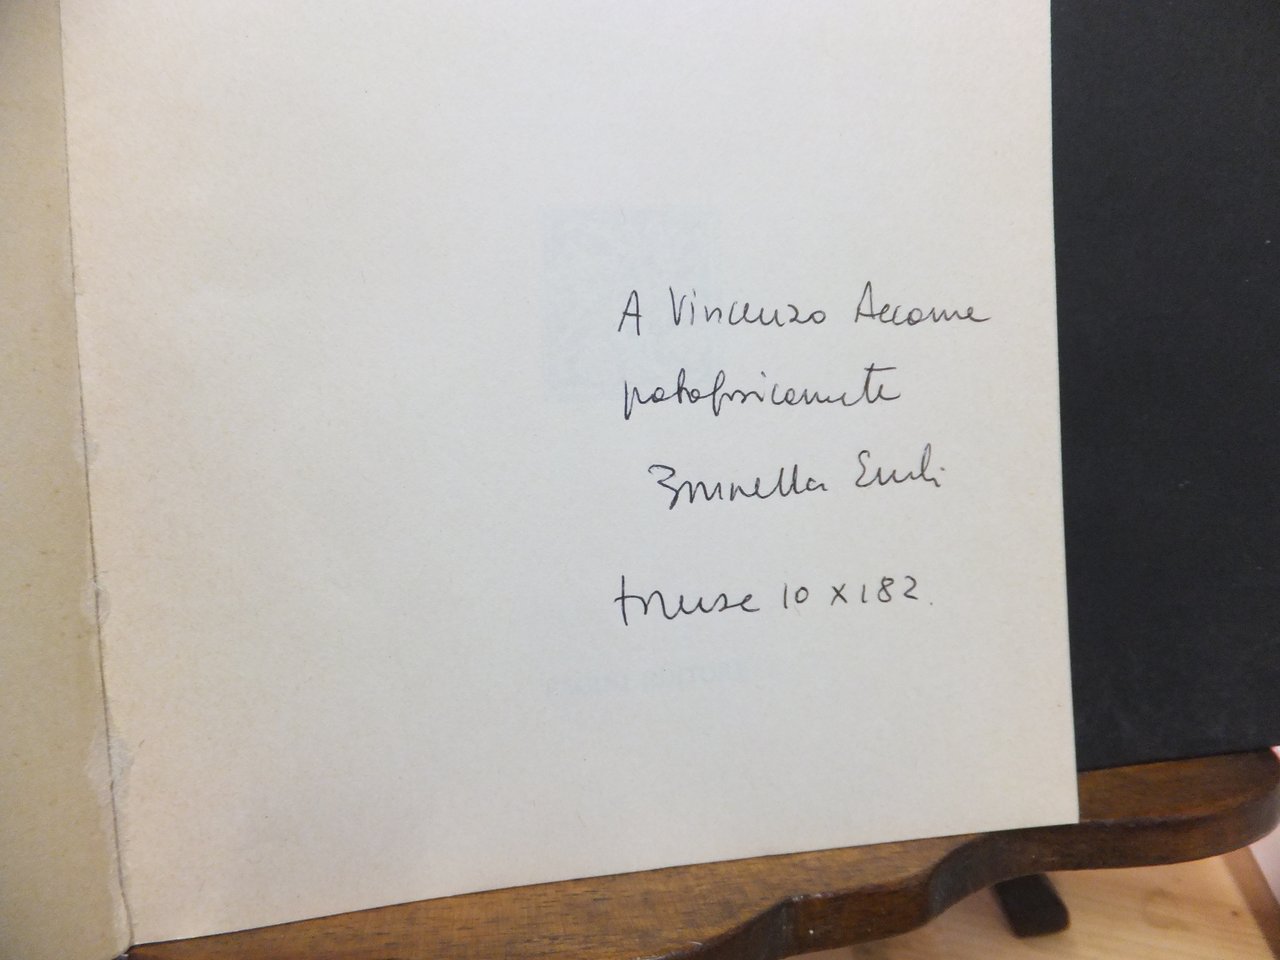 A Vincenzo Accame
patafisicamente
Brunella Eruli
Firenze 10 X 182.